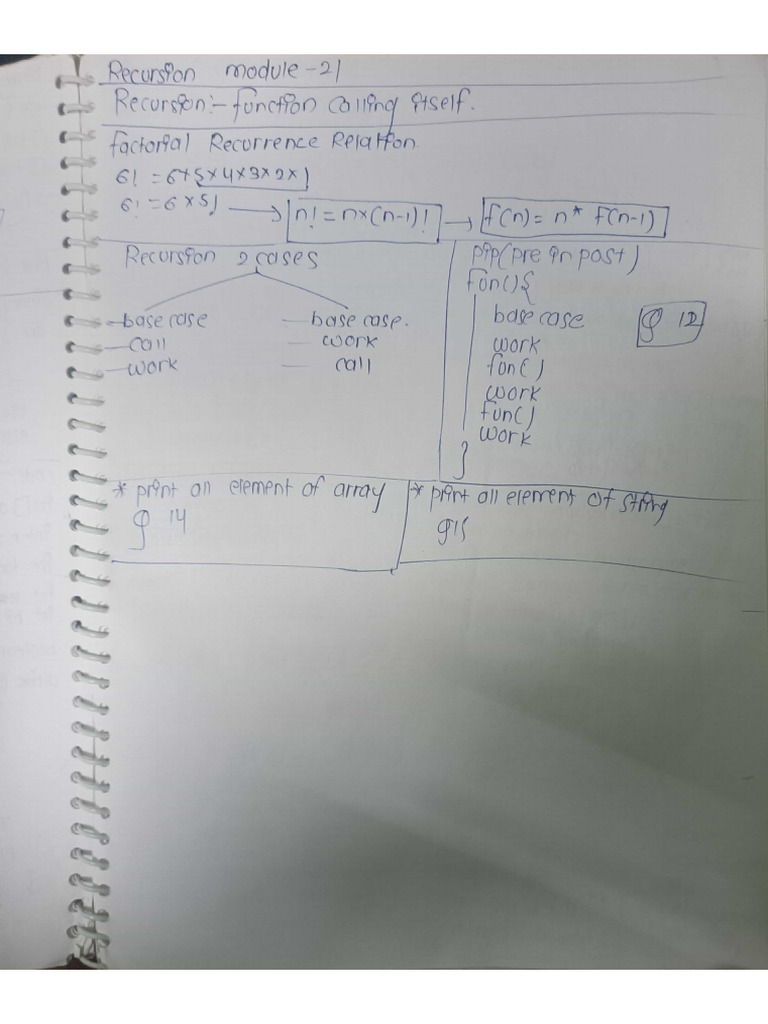 Recursion module-21
Recursion:- function calling itself.
factorial Recurrence Relation
6! = 6*5*4*3*2*1
6! = 6*5! → n! = n*(n-1)! → f(n) = n* f(n-1)
Recursion 2 cases
- base case
- call
- work
- base case.
- work
- call
pip(pre in post)
fun(){
base case
work
fun()
work
fun()
work
}
Q 12
* print all element of array
Q 14
* print all element of string
Q15